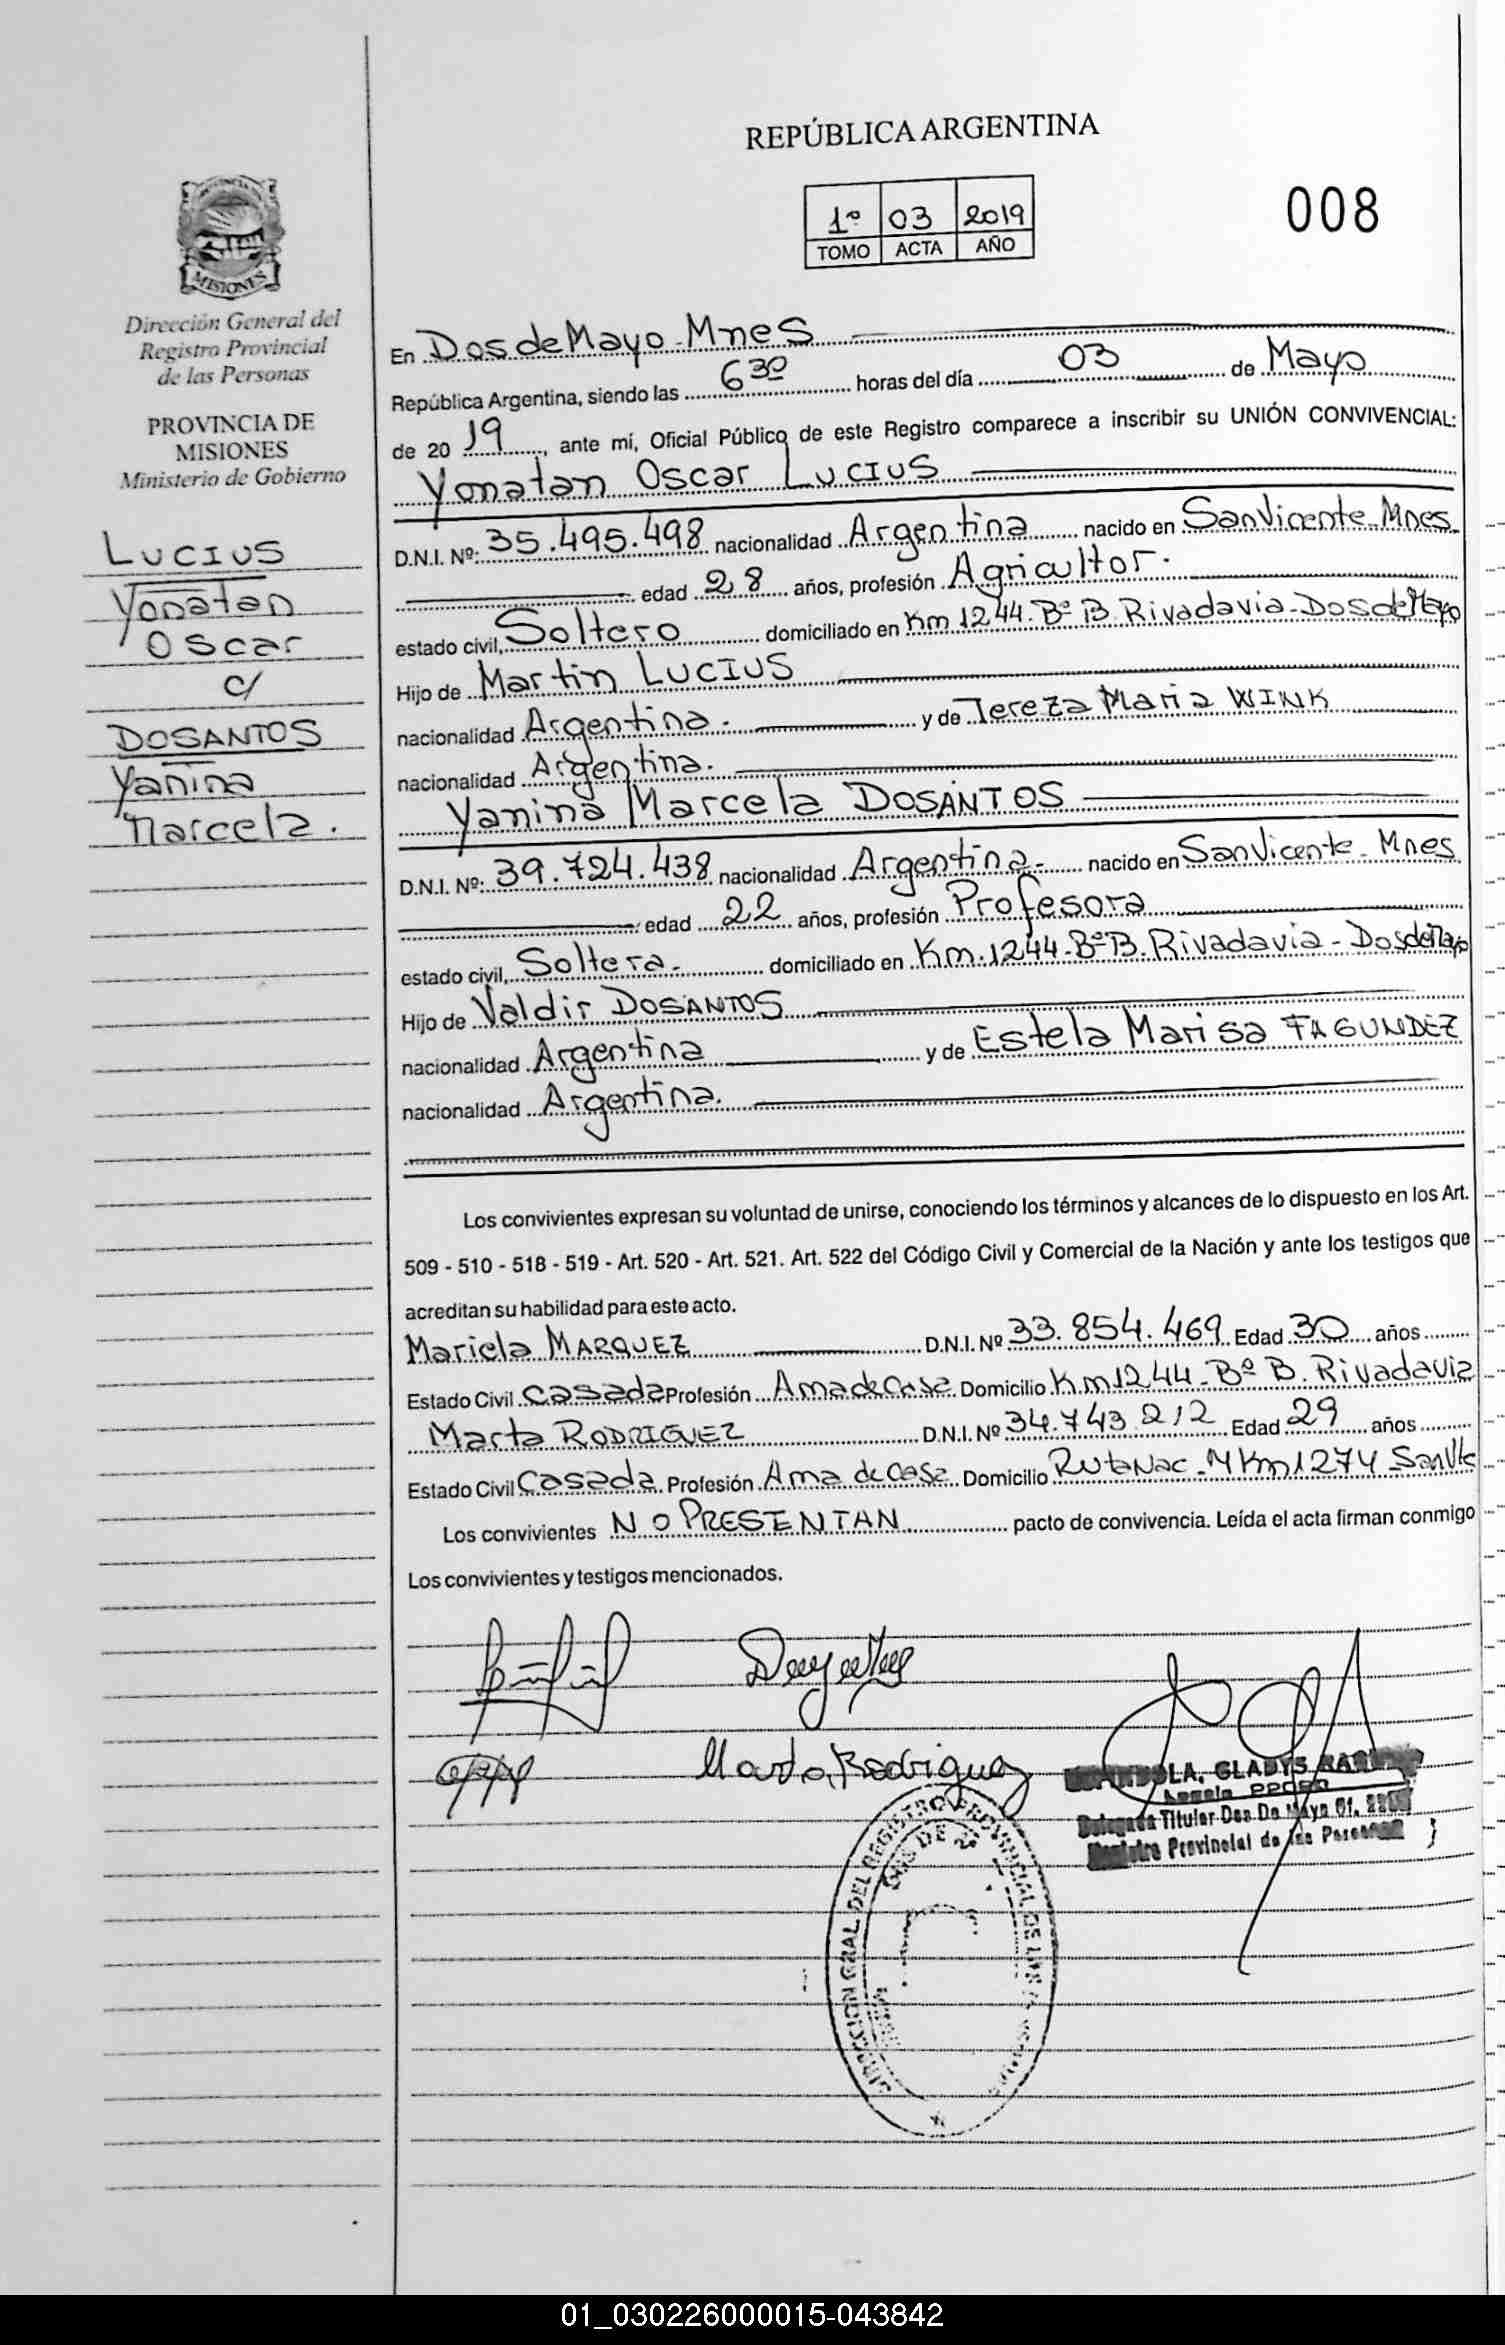 REPÚBLICA ARGENTINA
1º 03 2019
TOMO ACTA AÑO
008
MISIONES
Dirección General del
Registro Provincial
de las Personas
PROVINCIA DE
MISIONES
Ministerio de Gobierno
LUCIUS
Yonatan
Oscar
c/
DOSANTOS
Yanina
Marcela.
En Dos de Mayo - Mnes
República Argentina, siendo las 6 30 horas del día 03 de Mayo
de 20 19, ante mí, Oficial Público de este Registro comparece a inscribir su UNIÓN CONVIVENCIAL:
Yonatan Oscar LUCIUS
D.N.I. Nº: 35.495.498 nacionalidad Argentina nacido en San Vicente Mnes.
edad 28 años, profesión Agricultor.
estado civil, Soltero domiciliado en Km 1244. Bº B. Rivadavia - Dos de Mayo
Hijo de Martin LUCIUS
nacionalidad Argentina. y de Tereza Maria WINK
nacionalidad Argentina.
Yanina Marcela DOSANTOS
D.N.I. Nº: 39.724.438 nacionalidad Argentina - nacido en San Vicente - Mnes
edad 22 años, profesión Profesora
estado civil, Soltera - domiciliado en Km. 1244 - Bº B. Rivadavia - Dos de Mayo
Hijo de Valdir DOSANTOS
nacionalidad Argentina y de Estela Marisa FAGUNDEZ
nacionalidad Argentina.
Los convivientes expresan su voluntad de unirse, conociendo los términos y alcances de lo dispuesto en los Art.
509 - 510 - 518 - 519 - Art. 520 - Art. 521. Art. 522 del Código Civil y Comercial de la Nación y ante los testigos que
acreditan su habilidad para este acto.
Mariela MARQUEZ D.N.I. Nº 33.854.469 Edad 30 años
Estado Civil Casada Profesión Ama de Casa Domicilio Km 1244 - Bº B. Rivadavia
Marta RODRIGUEZ D.N.I. Nº 34.743.212 Edad 29 años
Estado Civil Casada Profesión Ama de Casa Domicilio Ruta Nac. Km 1274
Los convivientes NO PRESENTAN pacto de convivencia. Leída el acta firman conmigo
Los convivientes y testigos mencionados.
Marta Rodriguez
GLADYS
Titular Dos De Mayo
Provincial de las
DIRECCION GRAL DEL REGISTRO PROVINCIAL DE LAS
01_030226000015-043842